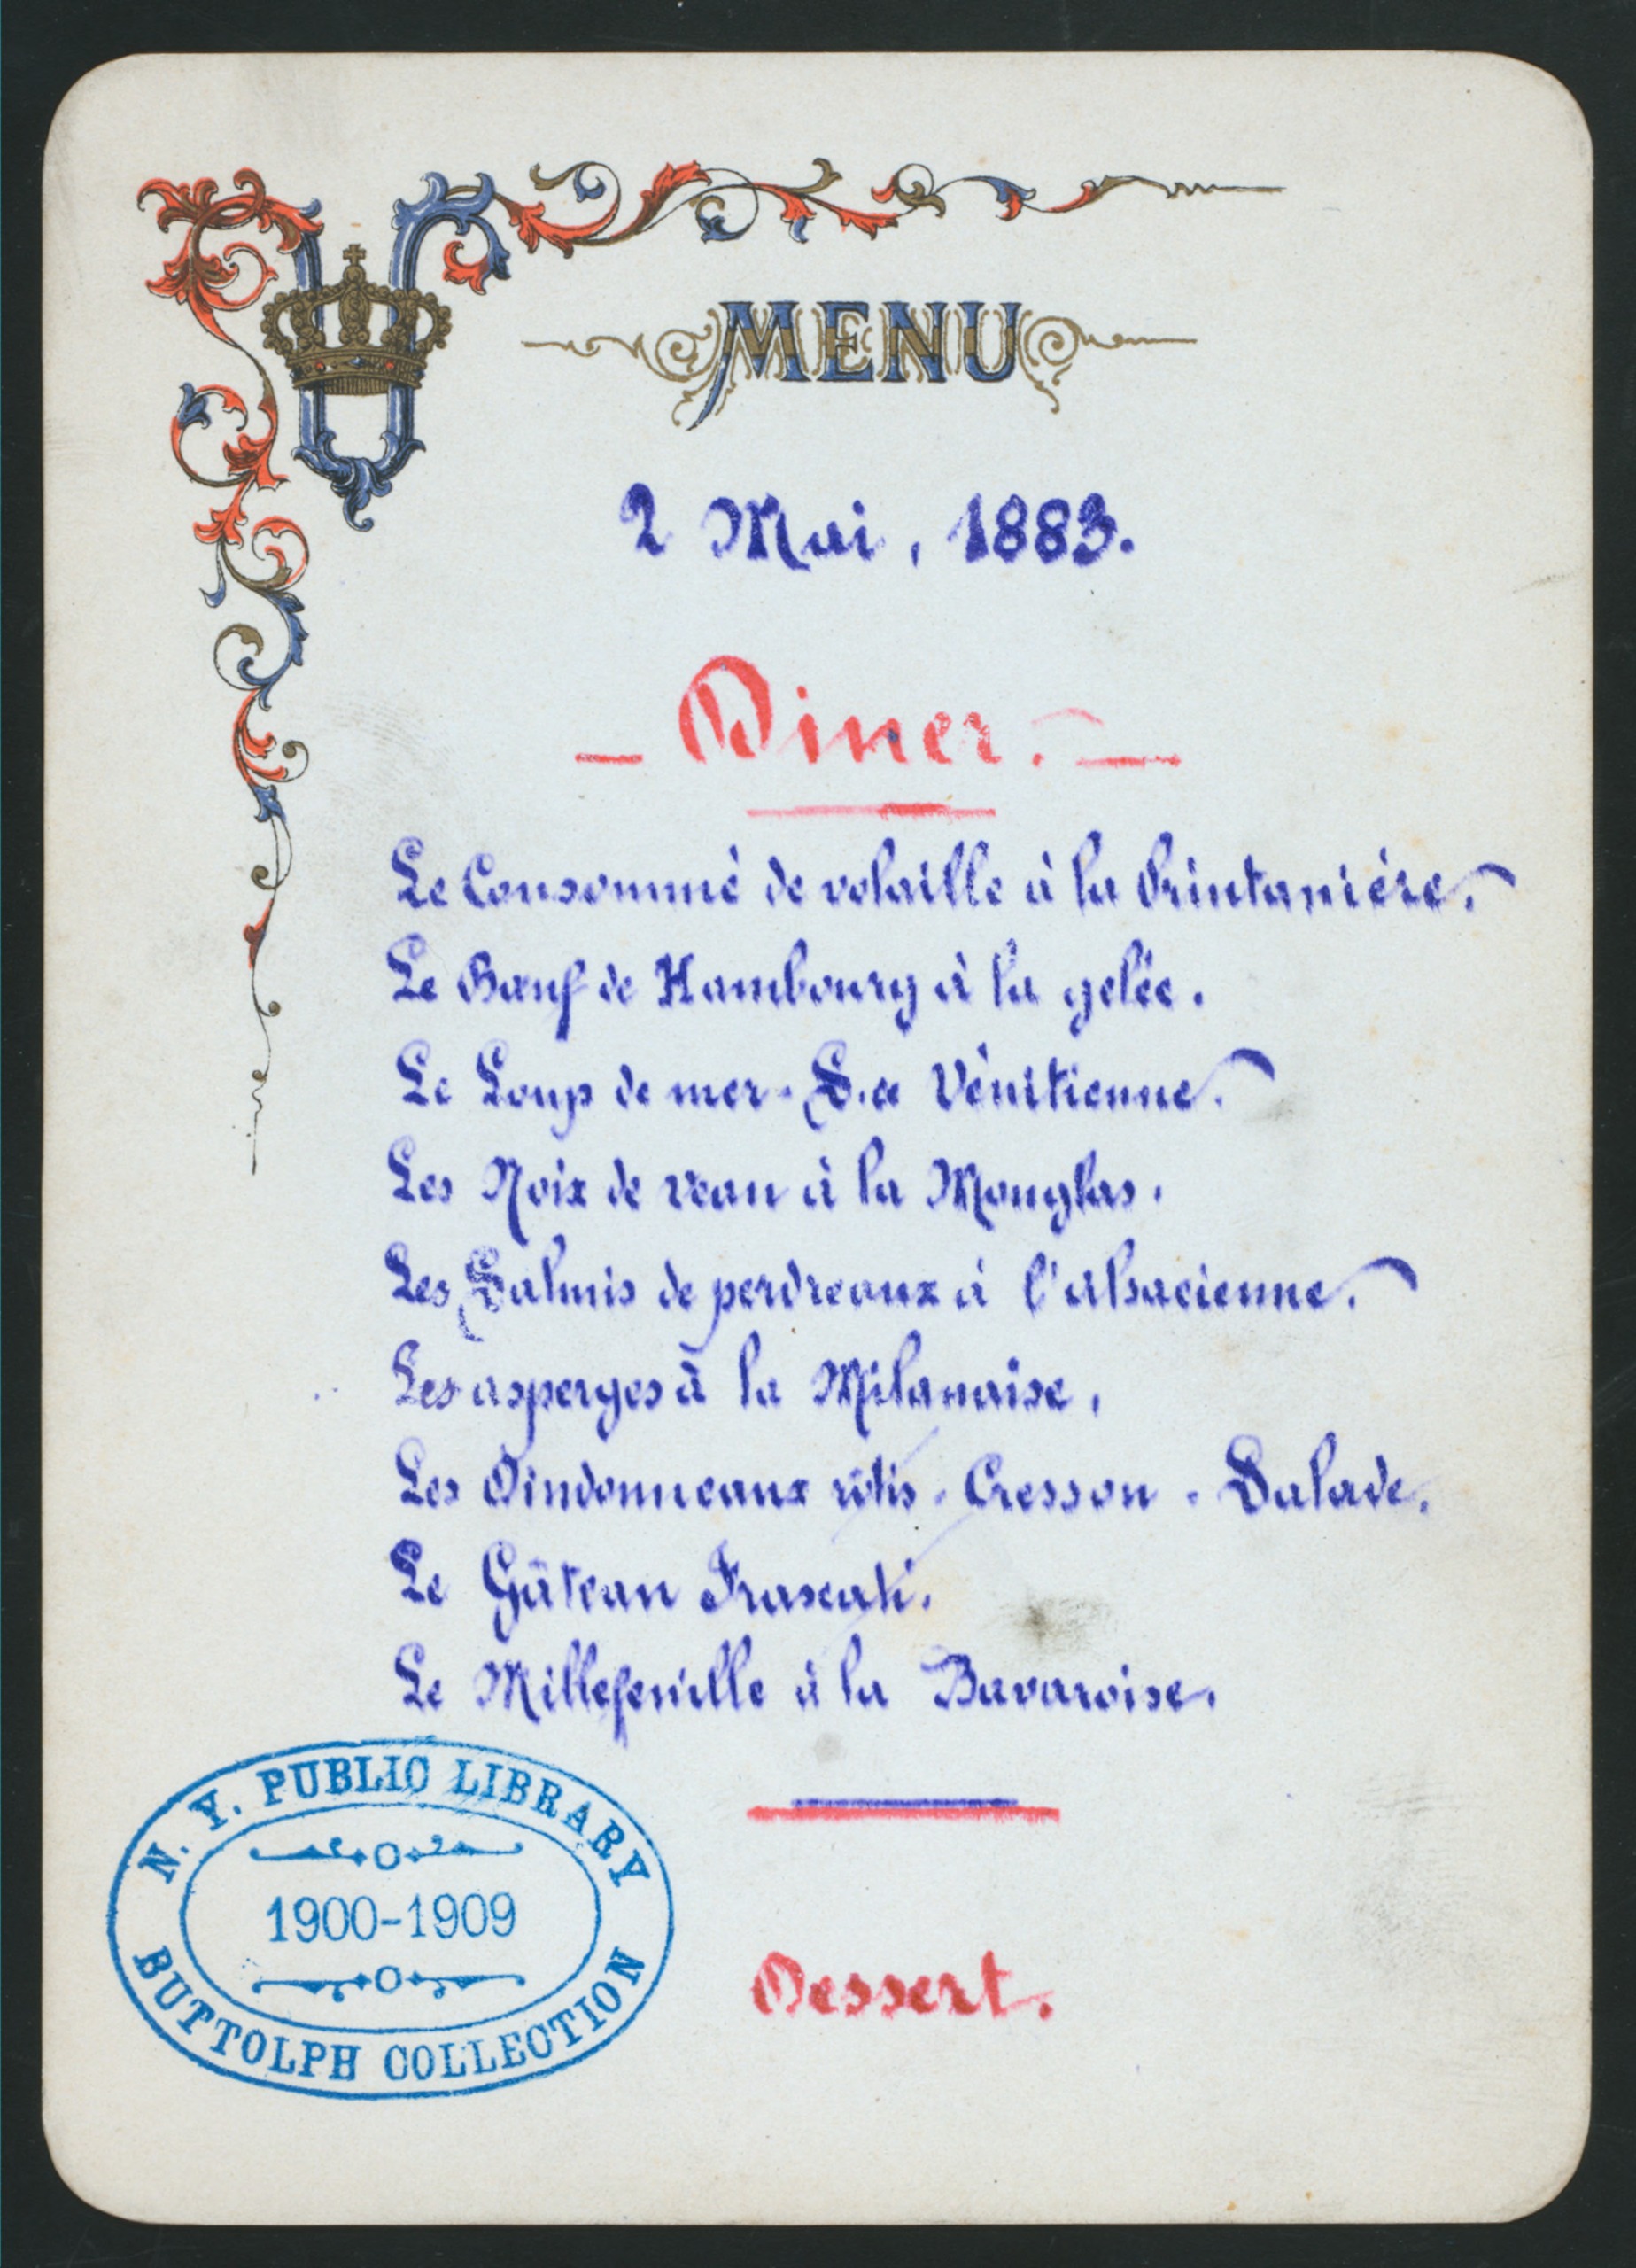 MENU
2 Mai, 1883.
- Diner. -
Le Consommé de volaille à la Printanière.
Le Bœuf de Hambourg à la gelée.
Le Loup de mer - S.ce Vénitienne.
Les Noix de veau à la Monglas.
Les Salmis de perdreaux à l'alsacienne.
Les asperges à la Milanaise.
Les Dindonneaux rôtis - Cresson - Salade.
Le Gâteau Frascati.
Le Millefeuille à la Bavaroise.
Dessert.
N. Y. PUBLIC LIBRARY
1900-1909
BUTTOLPH COLLECTION